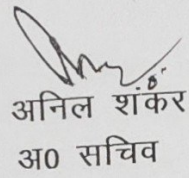 अनिल शंकर
अ0 सचिव